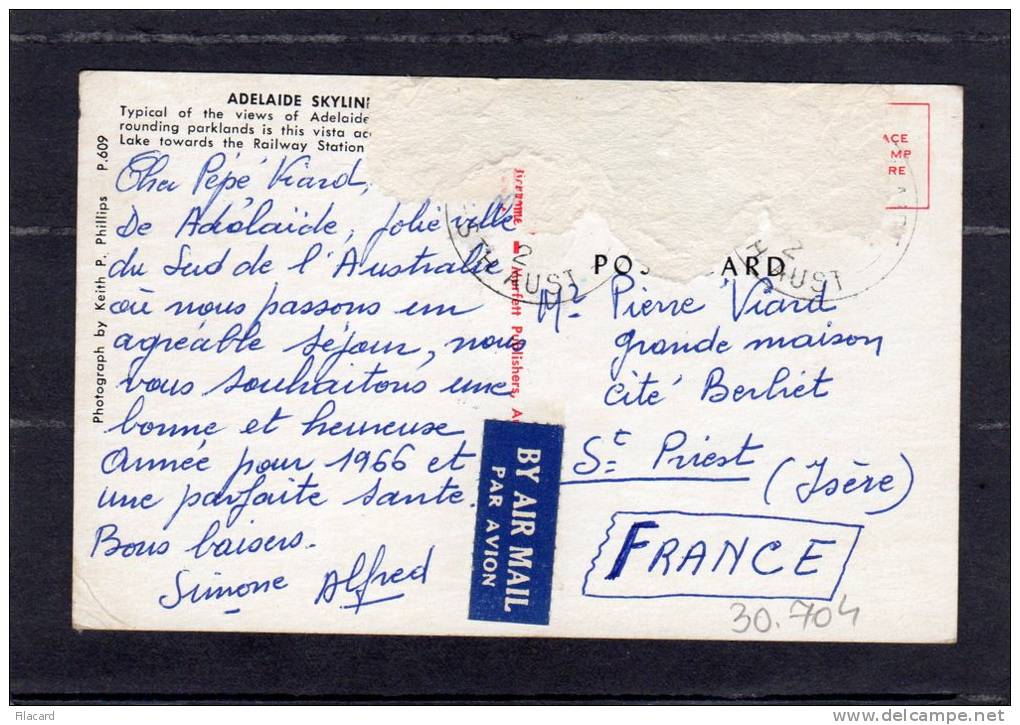 ADELAIDE SKYLIN
Typical of the views of Adelaide
rounding parklands is this vista ac
Lake towards the Railway Station
Photograph by Keith P. Phillips P.609
Cher Pépé Viard,
De Adélaïde, jolie ville
du Sud de l'Australie
où nous passons un
agréable séjour, nous
vous souhaitons une
bonne et heureuse
Année pour 1966 et
une parfaite santé.
Bons baisers.
Simone Alfred
Murfett Publishers, A
BY AIR MAIL
PAR AVION
ACE
MP
RE
STH AUST
2
H AUST
2
POS ARD
Mr Pierre Viard
grande maison
cité Berliet
St Priest
(Isère)
FRANCE
30.704
Filacard
delcampe.net